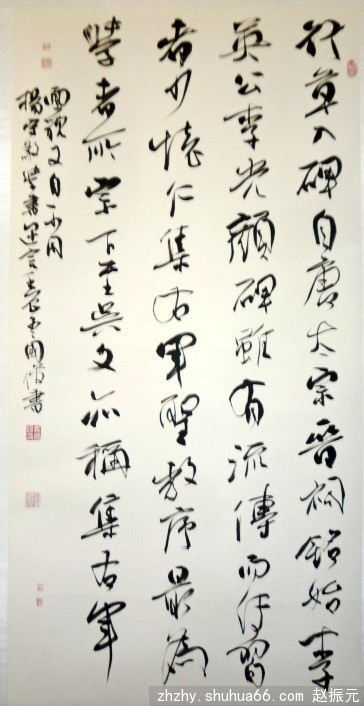 行草入碑自唐太宗晉祠銘始李
英公李光顏碑雖有流傳而傳習
者少懷仁集右軍聖教序最為
學者所宗下至吳文亦稱集右軍
面貌又自不同
楊守敬學書迩言 國 書
zhzhy.shuhua66.com 赵振元